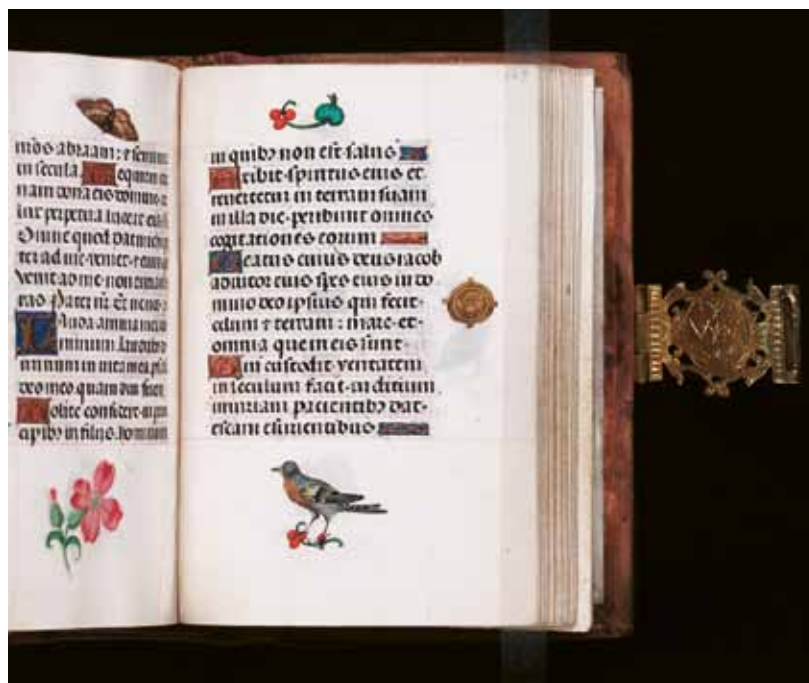 abraam: ⁊ semini
in secula. Requiem e
nam dona eis domine ⁊
lux perpetua luceat eis
Omne quod dat michi
ter ad me veniet ⁊ eum
venit ad me non eiciam
ras Pater nr̄ Et ne nos
Lauda anima mea
minum laudabo
minum in vita mea
deo meo quam diu fuero
Nolite confidere in prin
cipibꝫ in filiis hominum
in quibꝫ non est salus
Exibit spiritus eius et
revertetur in terram suam
in illa die peribunt omnes
cogitationes eorum
Beatus cuius deus iacob
adiutor eius spes eius in do
mino deo ipsius qui fecit
celum ⁊ terram : mare et
omnia que in eis sunt
Qui custodit veritatem
in seculum facit iudicium
iniuriam pacientibꝫ dat
escam esurientibus